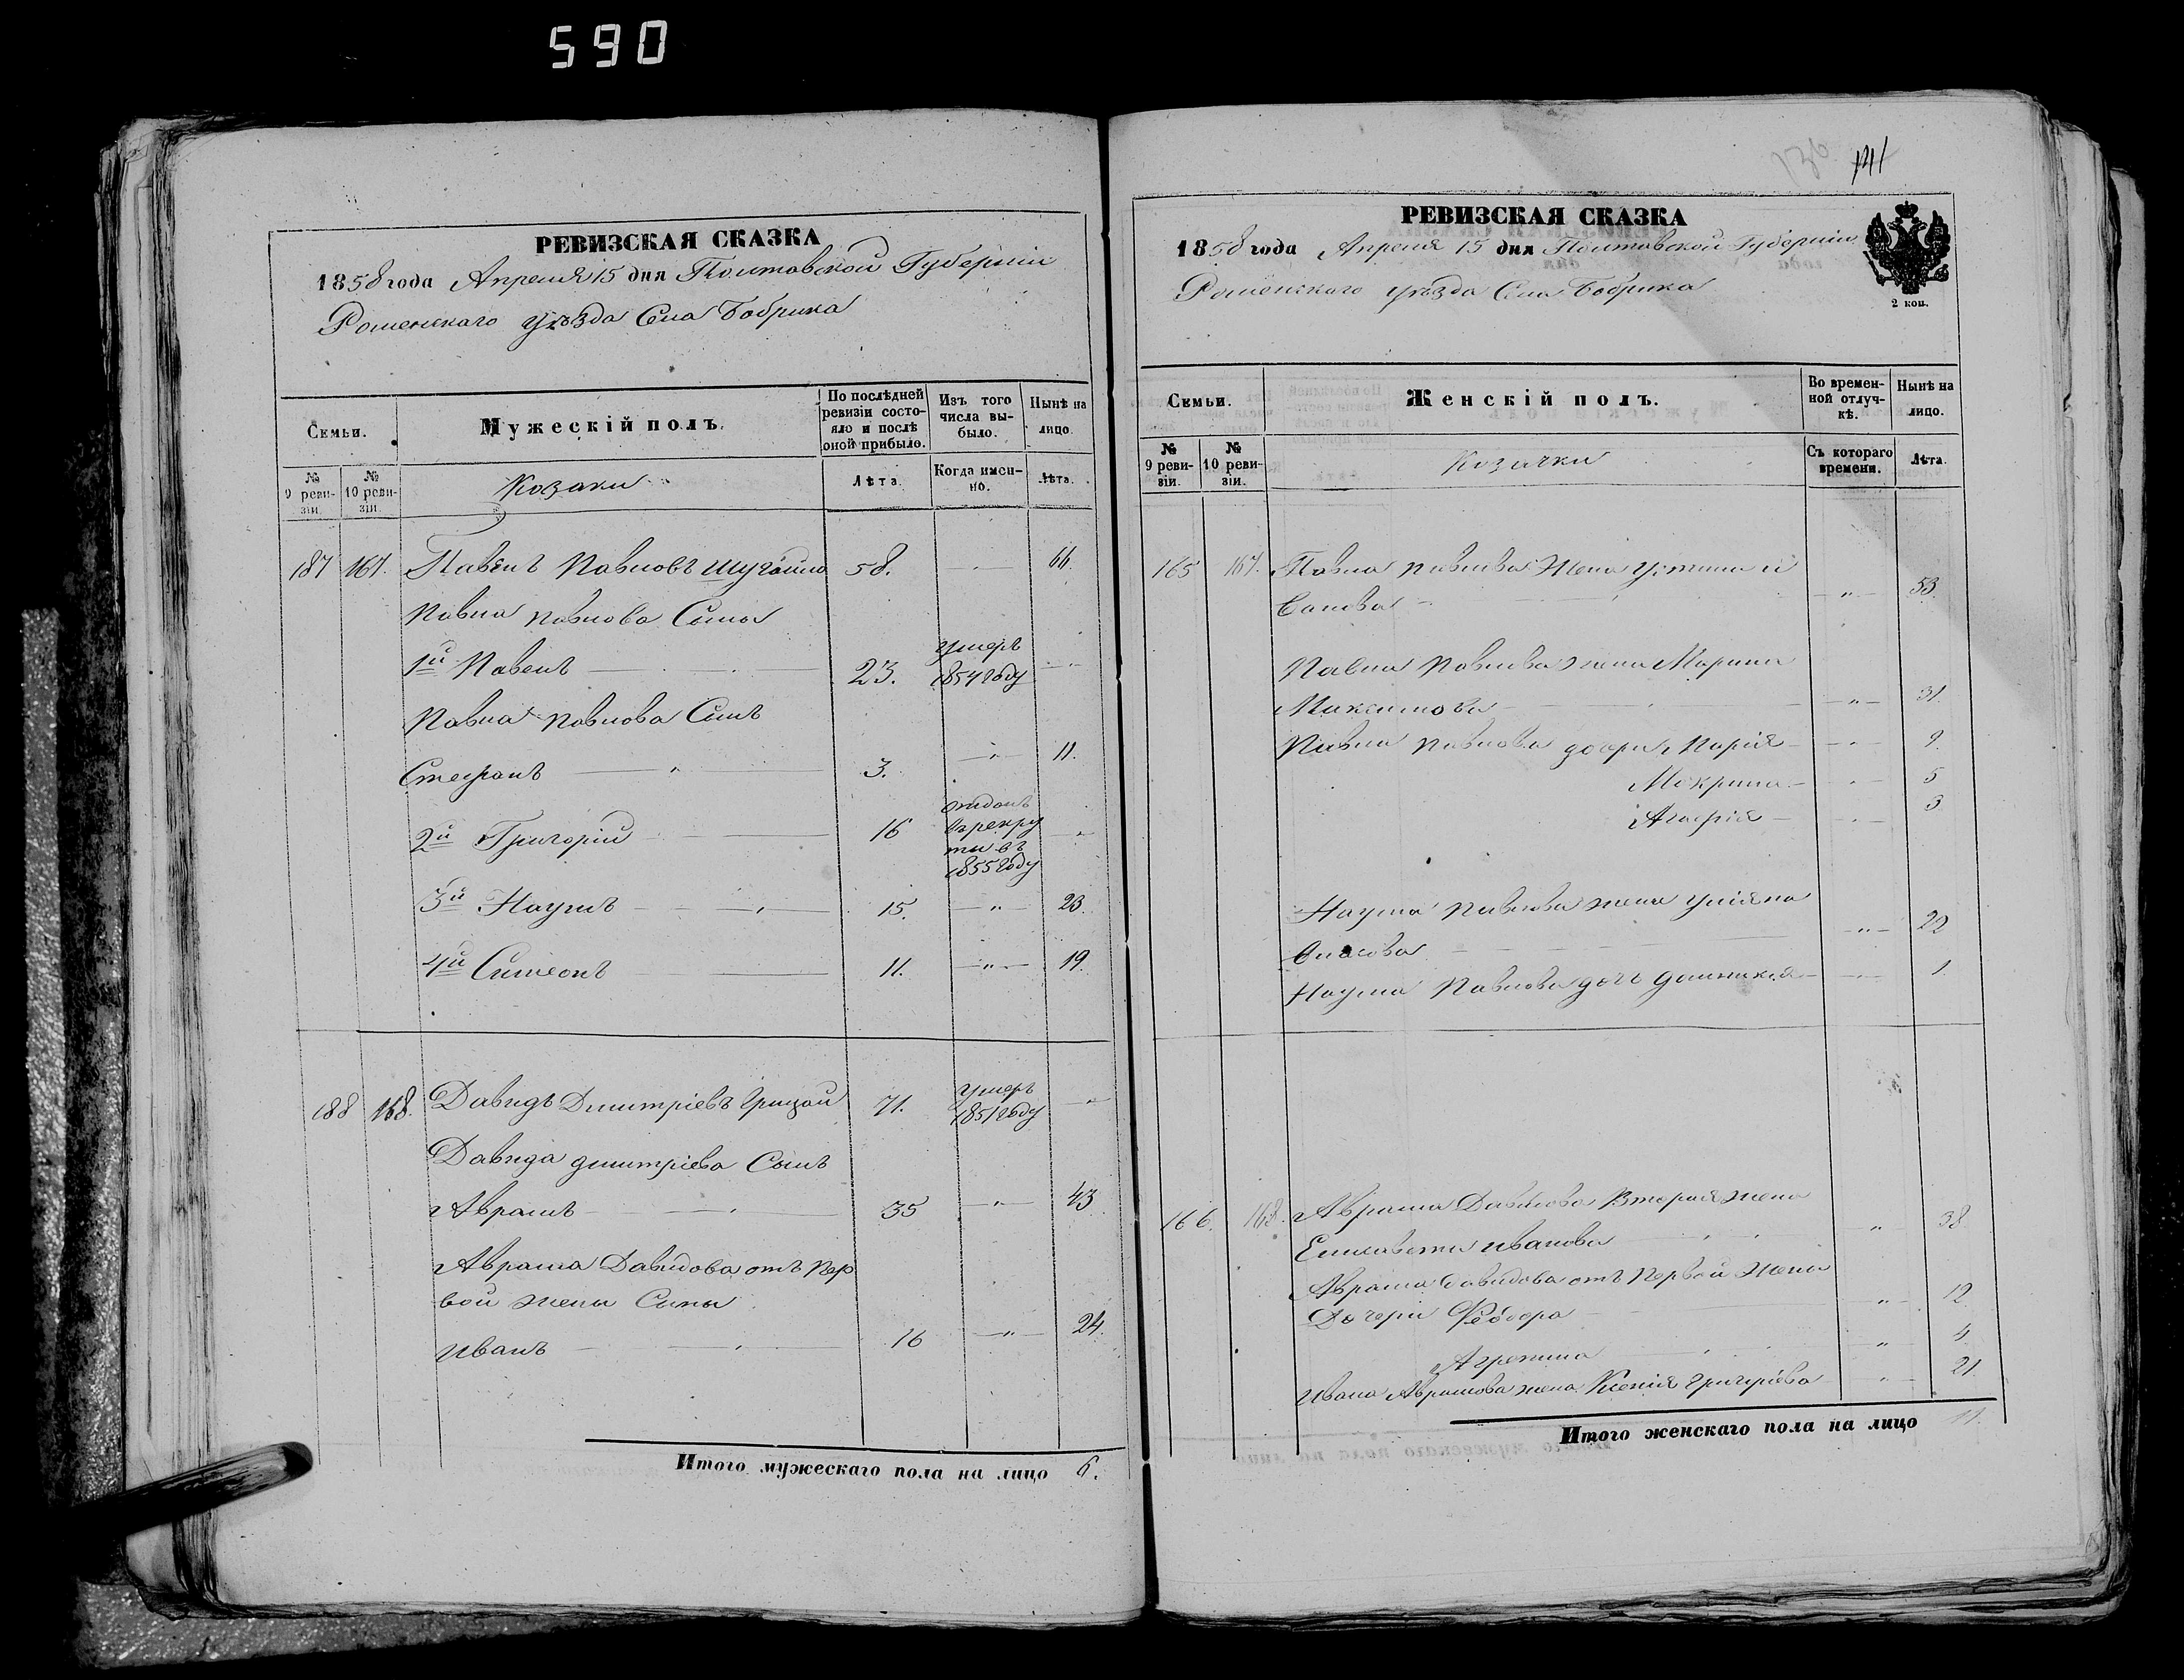 590
РЕВИЗСКАЯ СКАЗКА
1858 года Апреля 15 дня Полтавской Губернии
Роменского уѣзда Села Бобрика
Семьи.
Мужескій полъ.
По послѣдней ревизіи состояло и послѣ оной прибыло.
Изъ того числа выбыло.
Нынѣ на лицо.
№ 9 ревизіи.
№ 10 ревизіи.
Козаки
Лѣта.
Когда именно.
Лѣта.
187 167. Павелъ Павловъ 58. 66.
Павла Павлова Сыны
1й Павелъ 23. умеръ 1854 году
Павла Павлова Сынъ
Стефанъ 3. 11.
2й Григорий 16 отданъ въ рекруты въ 1855 году
3й Наумъ 15. 23.
4й Симеонъ 11. 19.
188 168. Давидъ Димитріевъ Грицай 71. умеръ 1851 году
Давида димитріева Сынъ
Аврамъ 35 43
Аврама Давидова отъ пер
вой жены Сыны
Иванъ 16 24.
Итого мужескаго пола на лицо 6.
141
РЕВИЗСКАЯ СКАЗКА
1858 года Апреля 15 дня Полтавской Губерніи
Роменского уѣзда Села Бобрика
2 коп.
Семьи.
Женскій полъ.
Во временной отлучкѣ.
Нынѣ на лицо.
№ 9 ревизіи.
№ 10 ревизіи.
Козачки
Съ котораго времени.
Лѣта.
165 167. Павла Павлова Жена
53.
Павла Павлова жена Марина
Максимова 31.
Павла Павлова дочери, Марія 9.
Мокрина 5
Агафія 3
Наума Павлова жена Уліяна
Власова 22
Наума Павлова дочь Домникія 1.
166. 168. Аврама Давидова Вторая жена
Елисавета Иванова 38
Аврама Давидова отъ первой жены
Дочери Феодора 12
Агрепина
Ивана Аврамова жена Ксенія Григорієва 21
Итого женскаго пола на лицо 11.